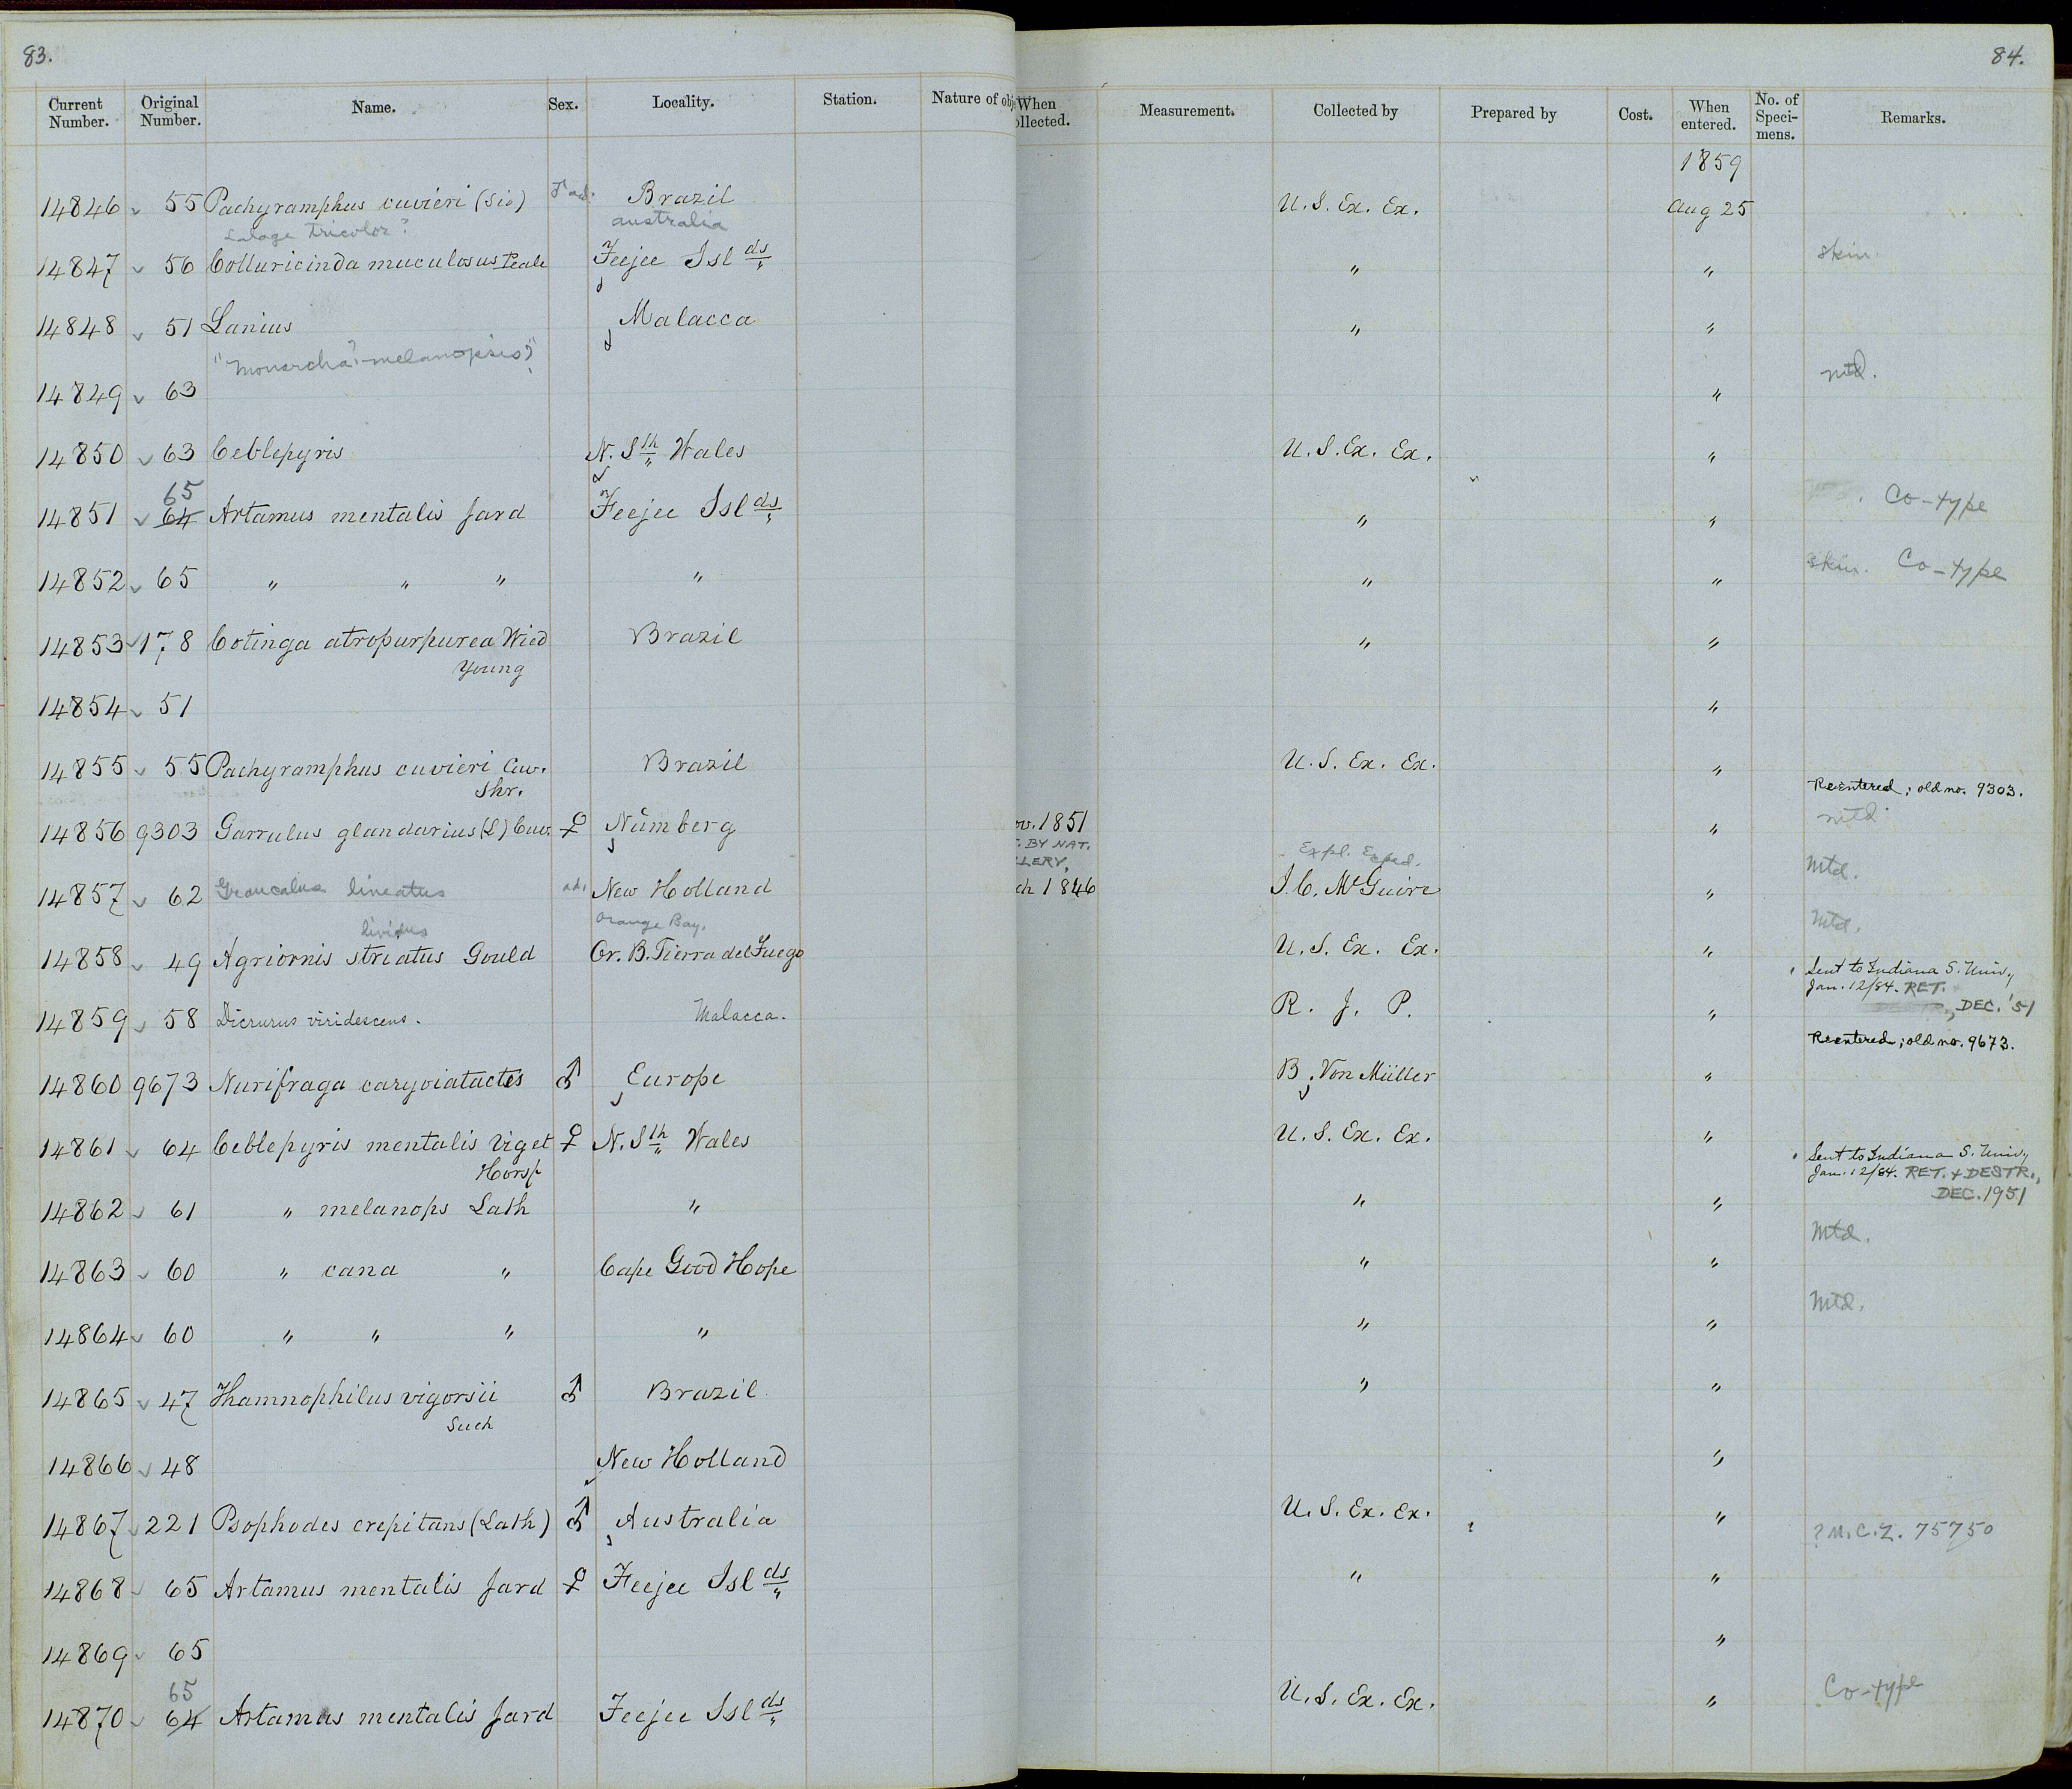 83.
84.
Current Number. Original Number. Name. Sex. Locality. Station. Nature of obj When ollected. Measurement. Collected by Prepared by Cost. When entered. No. of Speci-mens. Remarks.
1859
14846 55 Pachyramphus cuvieri (Sw) ad. Brazil U. S. Ex. Ex. Aug 25
Lalage tricolor? australia
14847 56 Colluricinda muculosus Peale Feejee Islds " " skin.
14848 51 Lanius Malacca " "
"Monarcha? melanopsis?"
14849 63 " mtd.
14850 63 Ceblepyris N. Sth Wales U. S. Ex. Ex. "
65
14851 64 Artamus mentalis Jard Feejee Islds " " Co-type
14852 65 " " " " " " skin. Co-type
14853 178 Cotinga atropurpurea Wied Brazil " "
Young
14854 51 "
14855 55 Pachyramphus cuvieri Cuv. Brazil U. S. Ex. Ex. "
Shr.
Reentered; old no. 9303.
14856 9303 Garrulus glandarius (L) Cuv. ♀ Nürnberg ov. 1851 " mtd
. BY NAT.
LLERY,
Expl. Exped.
14857 62 Graucalus lineatus ad. New Holland ch 1846 J. C. McGuire " Mtd.
lividus Orange Bay.
14858 49 Agriornis striatus Gould Or. B. Tierra del Fuego U. S. Ex. Ex. " Mtd.
Sent to Indiana S. Univ,
Jan. 12/84. RET.
DEC. '51
14859 58 Dicrurus viridescens. Malacca. R. J. P. "
Reentered; old no. 9673.
14860 9673 Nurifraga caryoiatactes ♂ Europe B. Von Müller "
14861 64 Ceblepyris mentalis Viget ♀ N. Sth Wales U. S. Ex. Ex. "
Horsf
Sent to Indiana S. Univ,
Jan. 12/84. RET. + DESTR.,
DEC. 1951
14862 61 " melanops Lath " " "
14863 60 " cana " Cape Good Hope " " Mtd.
14864 60 " " " " " " Mtd.
14865 47 Thamnophilus vigorsii ♂ Brazil " "
Such
14866 48 New Holland "
14867 221 Psophodes crepitans (Lath) ♂ Australia U. S. Ex. Ex. " ? M.C.Z. 75750
14868 65 Artamus mentalis Jard ♀ Feejee Islds " "
14869 65 "
65
14870 64 Artamus mentalis Jard Feejee Islds U. S. Ex. Ex. " Co-type